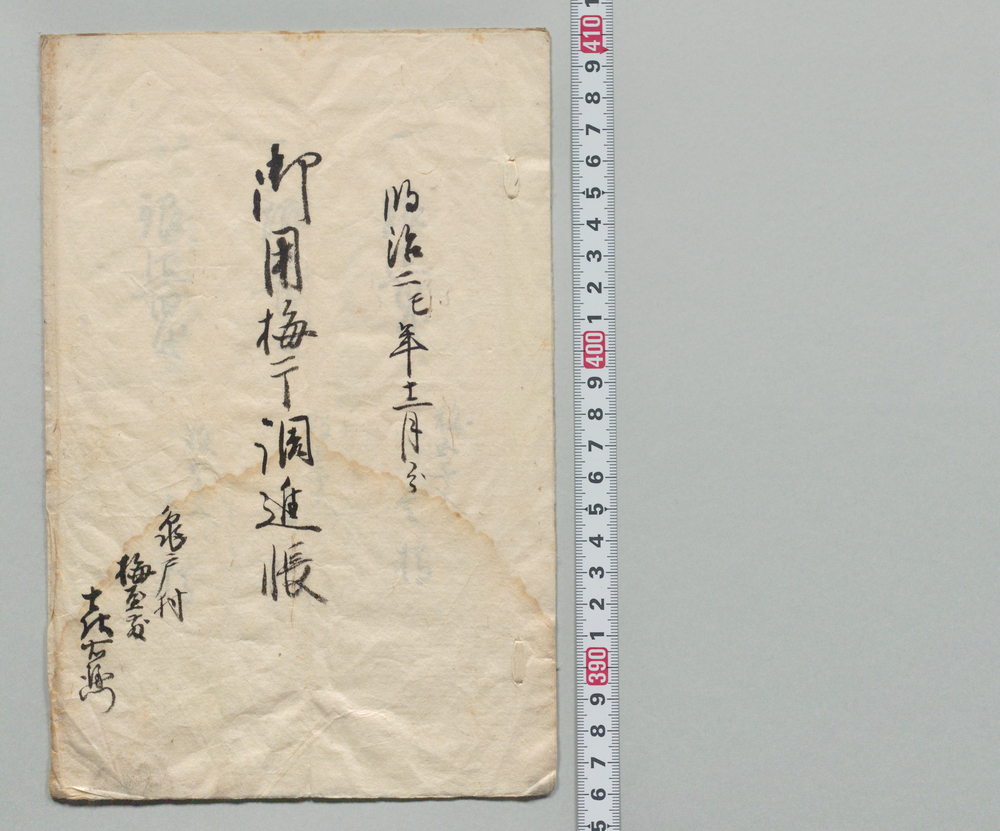 明治二巳年十二月分
御用梅干調進帳
亀戸村
梅屋敷
喜右衛門
410 9 8 7 6 5 4 3 2 1 400 9 8 7 6 5 4 3 2 1 390 9 8 7 6 5